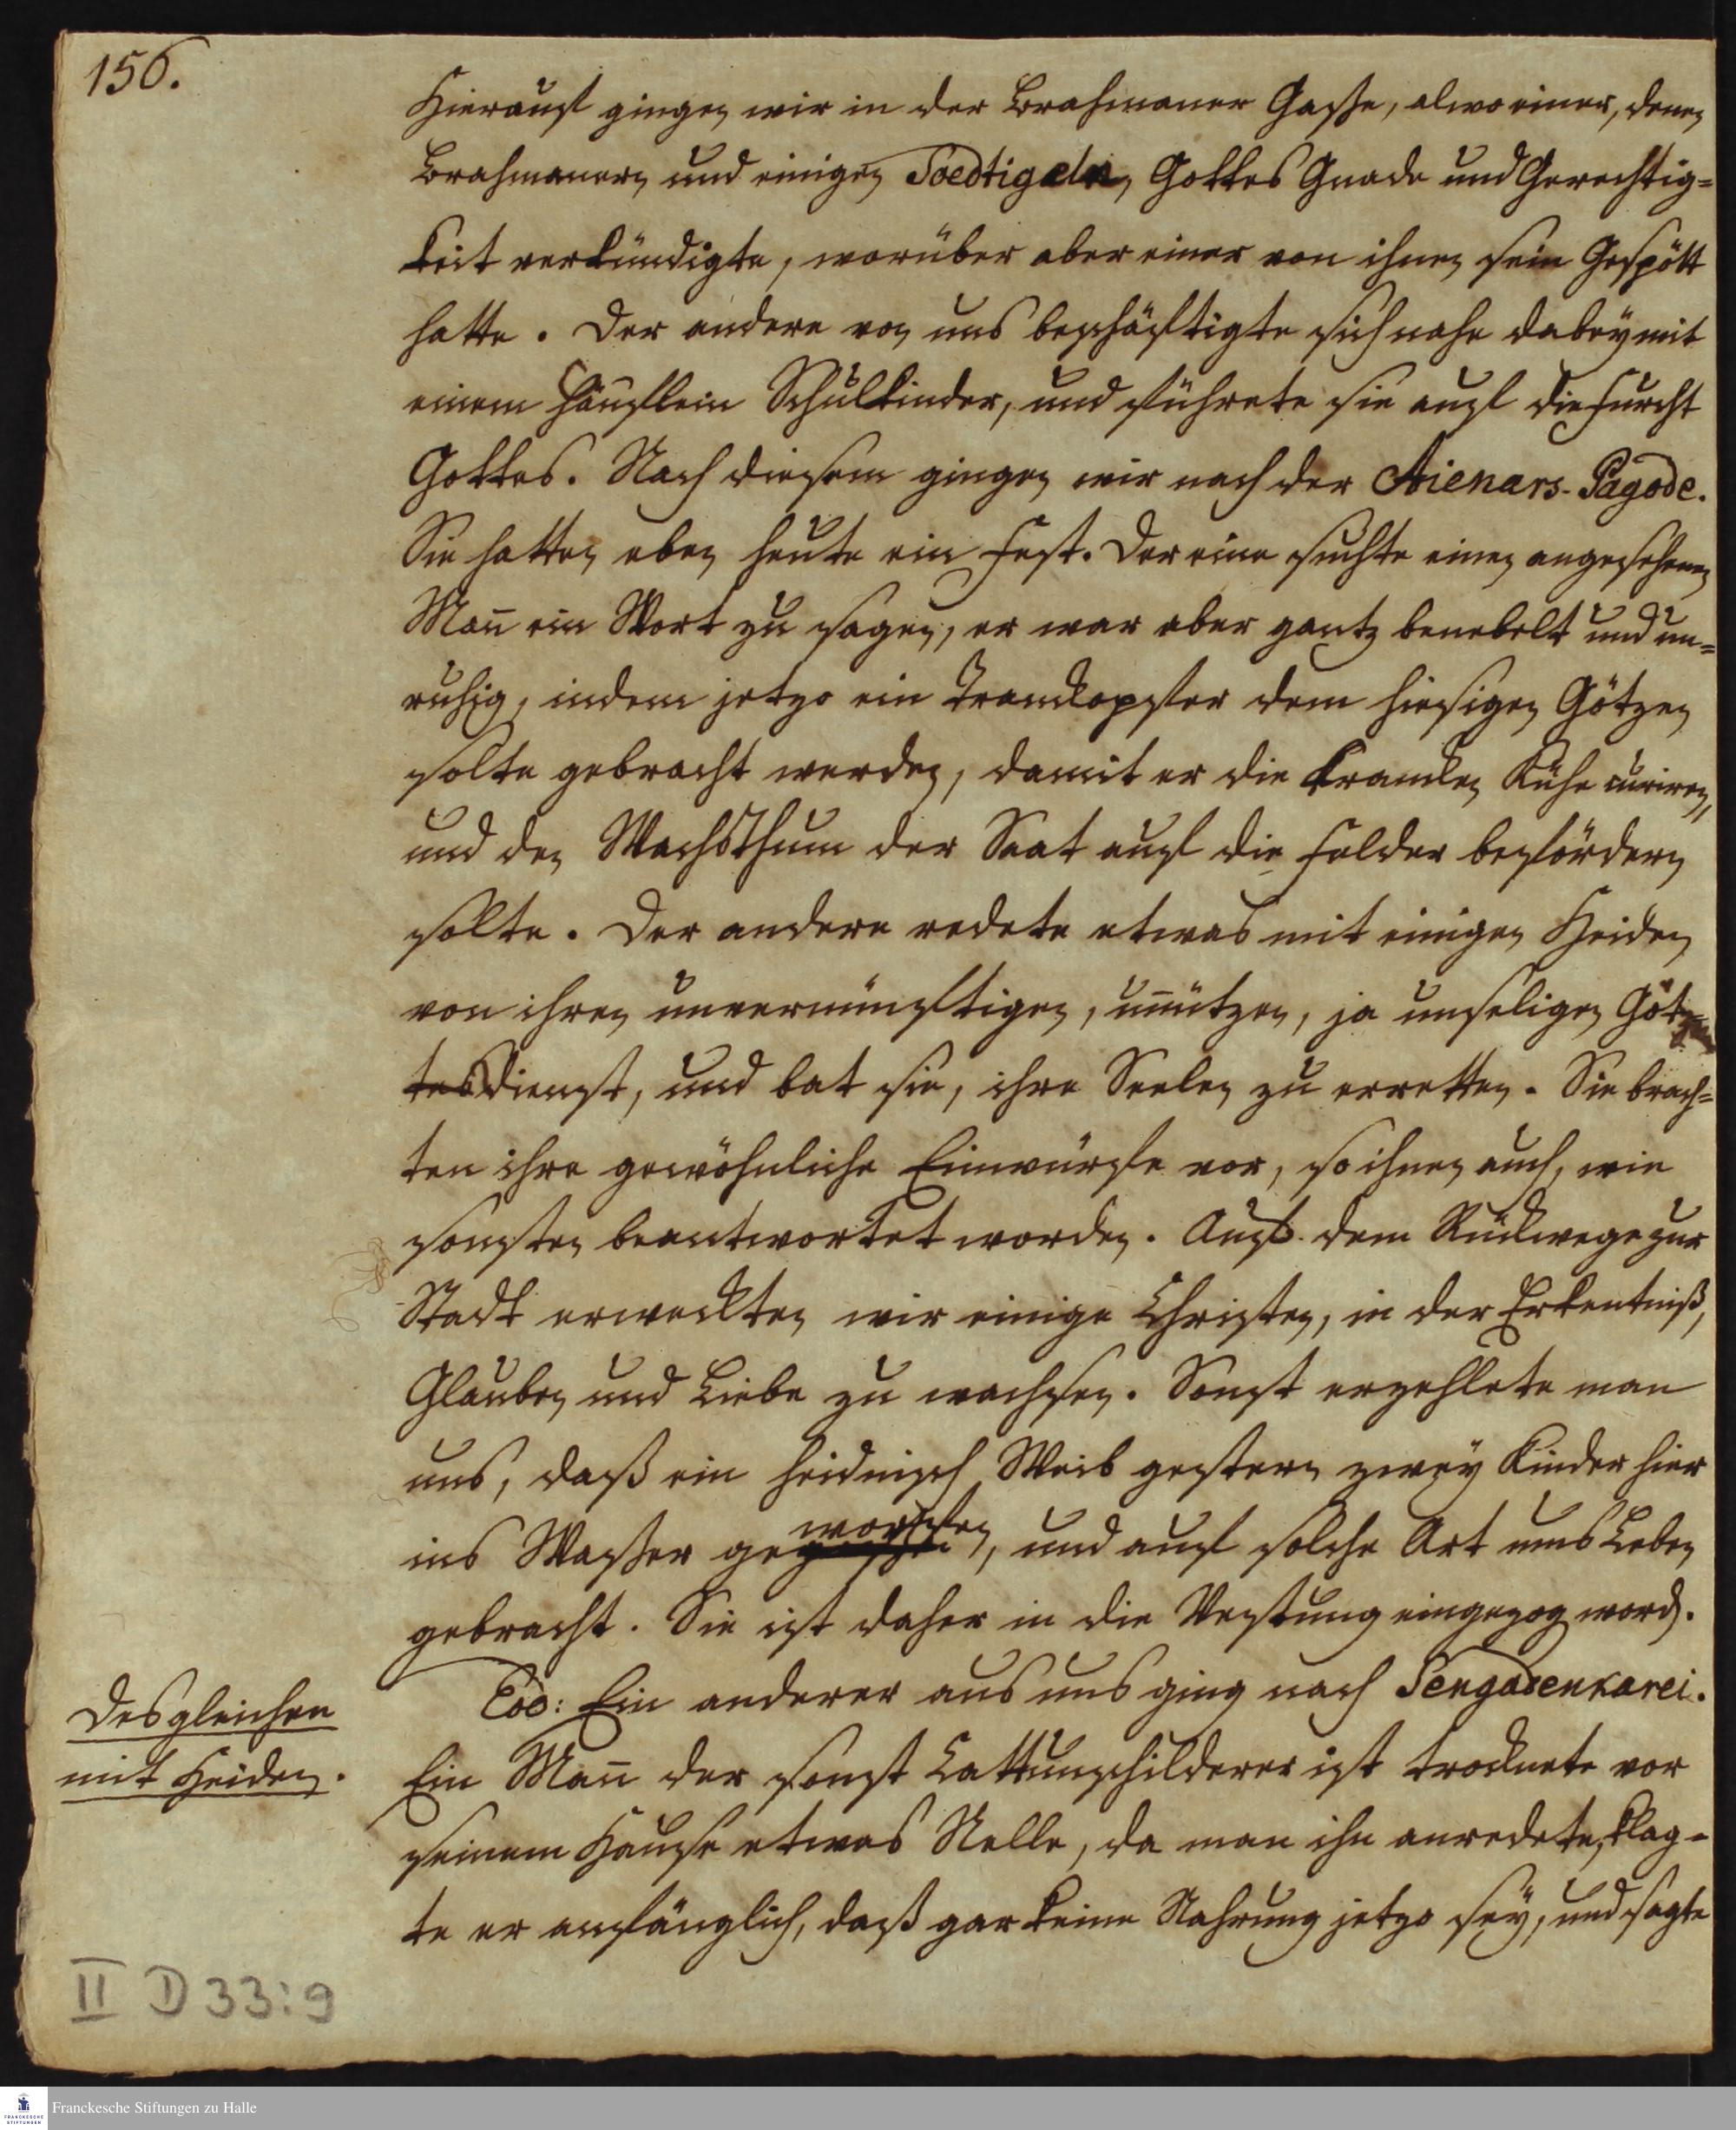 156.
Hierauf gingen wir in der Brahmaner Gasse, alwo einer, denen
Brahmanern und einigen Toedtigaeln, Gottes Gnade und Gerechtig=
keit verkündigte, worüber aber einer von ihnen sein Gespött
hatte. Der andere von uns beschäftigte sich nahe dabey mit
einem Häuflein Schulkinder, und führete sie auf die Furcht
Gottes. Nach diesem gingen wir nach der Aienars-Pagode.
Sie hatten eben heute ein Fest. Der eine suchte einen angesehenen
Mañ ein Wort zu sagen, er war aber gantz benebelt und un=
ruhig, indem jetzo ein Tranckopfer dem hiesigen Götzen
solte gebracht werden, damit er die krancken Kühe curiren,
und den Wachsthum der Saat auf die Felder befördern
solte. Der andere redete etwas mit einigen Heiden
von ihren unvernünftigen, uñützen, ja unseligen Götzen
tesdienst, und bat sie, ihre Seelen zu erretten. Sie brach=
ten ihre gewöhnliche Einwürfe vor, so ihnen auch, wie
sonsten beantwortet worden. Auf dem Rückwege zur
Stadt erweckten wir einige Christen, in der Erkentniß,
Glauben und Liebe zu wachsen. Sonst erzehlete man
uns, daß ein heidnisch Weib gestern zwey Kinder hier
ins Wasser geworfen, und auf solche Art ums Leben
gebracht. Sie ist daher in die Vestung eingezog word.
Desgleichen
mit Heiden.
Eod: Ein anderer aus uns ging nach Sengadenkarei.
Ein Mañ der sonst Cattunschilderer ist trocknete vor
seinem Hause etwas Nelle, da man ihn anredete, klag=
te er anfänglich, daß gar keine Nahrung jetzo sey, und sagte
II D 33:9
FRANCKESCHE
STIFTUNGEN
Franckesche Stiftungen zu Halle